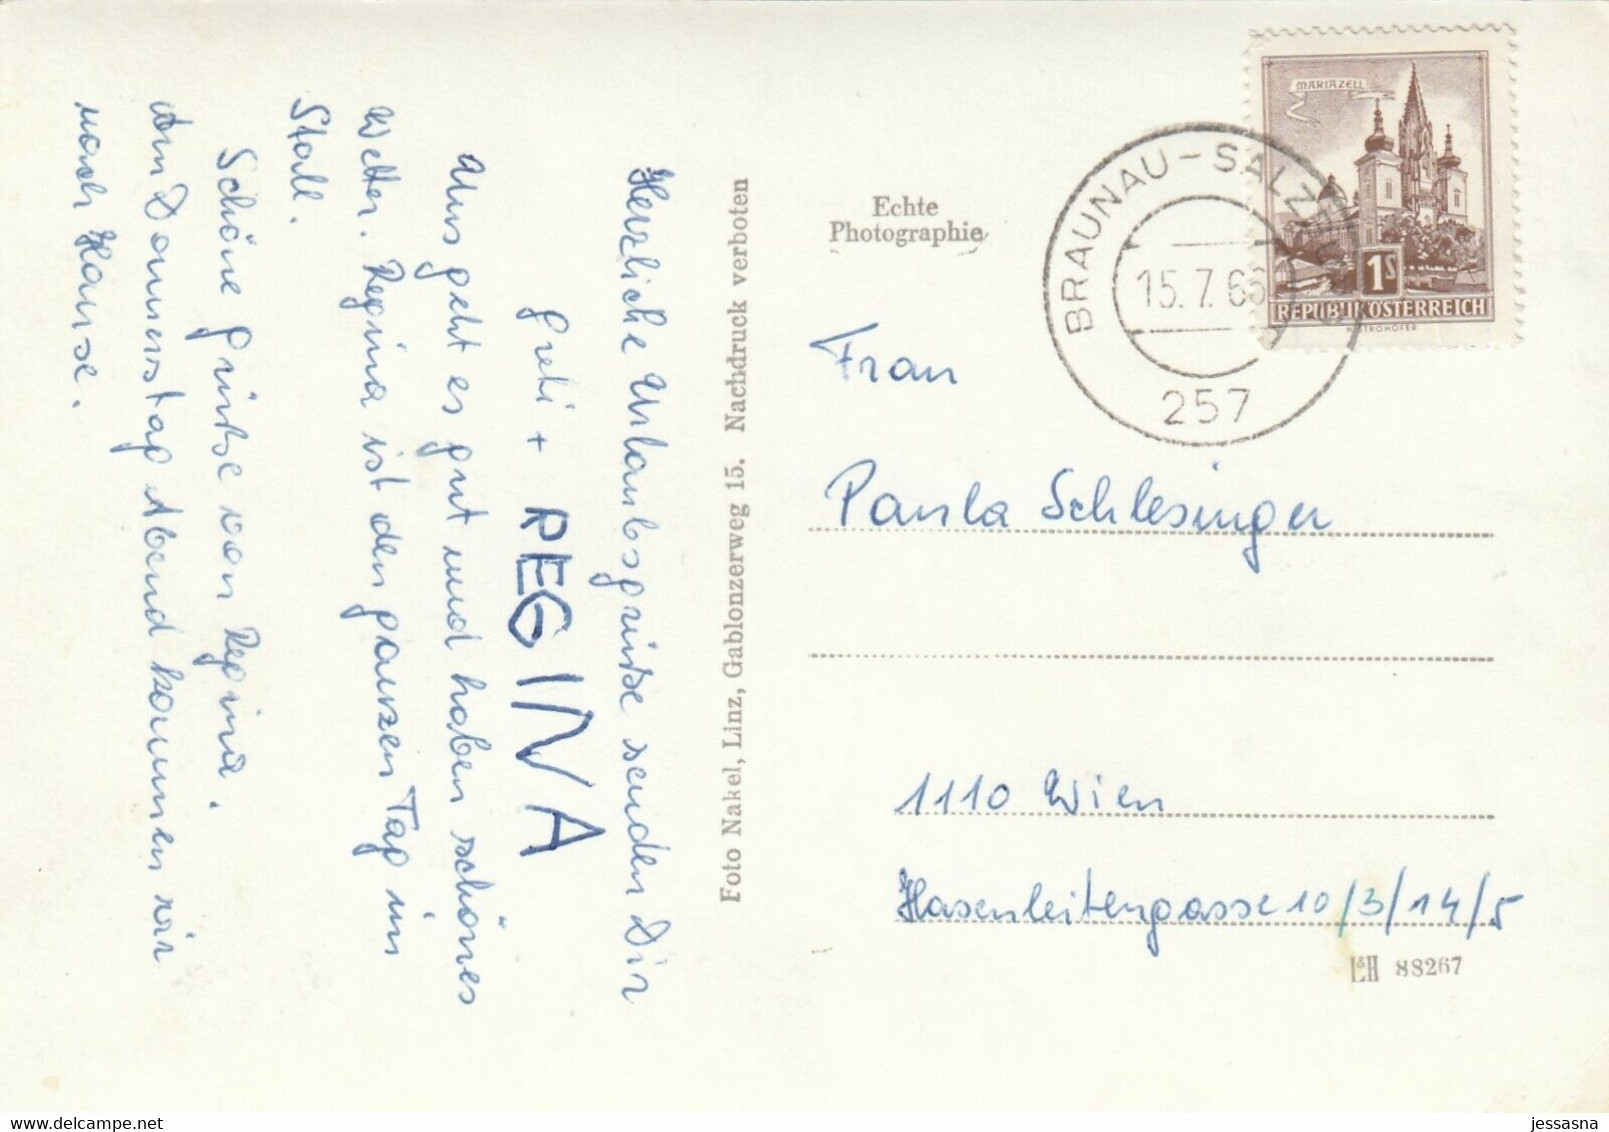 Herzliche Urlaubsgrüsse senden Dir
Greti + REGINA
Uns geht es gut und haben schönes
Wetter. Regina ist den ganzen Tag im
Stall.
Schöne Grüsse von Regina.
Am Donnerstag Abend kommen wir
nach Hause.
Foto Nakel, Linz, Gablonzerweg 15. Nachdruck verboten
Echte
Photographie
MARIAZELL
1S
REPUBLIK ÖSTERREICH
BRAUNAU-SALZBURG
15. 7. 66
257
Frau
Paula Schlesinger
1110 Wien
Hasenleitengasse 10/3/14/5
L&H 88267
jessasna